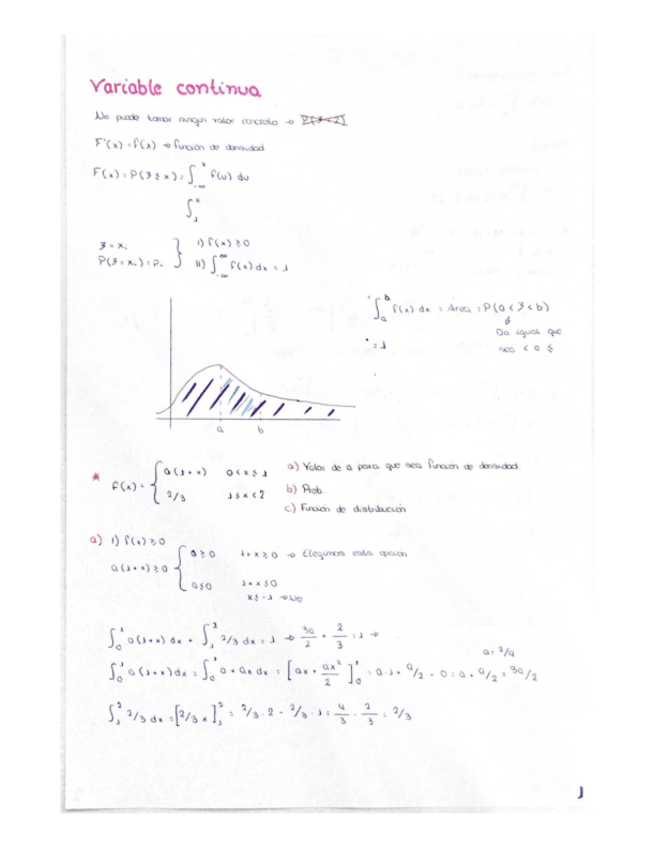 Variable continua
No puede tomar ningun valor concreto → P(ξ<2)
F'(x) = f(x) → función de densidad
F(x) = P(ξ ≤ x) = ∫_{-∞}^{x} f(u) du
∫_1^x
ξ = xᵢ } i) f(x) ≥ 0
P(ξ = xᵢ) = Pᵢ } ii) ∫_{-∞}^{∞} f(x) dx = 1
∫_a^b f(x) dx = Área = P(a < ξ < b)
Da igual que
sea < o ≤
= 1
a b
* f(x) = { a(1+x) 0 < x ≤ 1
2/3 1 ≤ x < 2
a) Valor de a para que sea función de densidad.
b) Prob.
c) Función de distribución
a) i) f(x) ≥ 0
a(1+x) ≥ 0 { a ≥ 0 1+x ≥ 0 → Elegimos esta opción
a ≤ 0 1+x ≤ 0
x ≤ -1 → No
∫_0^1 a(1+x) dx + ∫_1^2 2/3 dx = 1 → 3a/2 + 2/3 = 1 →
a = 2/9
∫_0^1 a(1+x) dx = ∫_0^1 a + ax dx = [ax + ax²/2]_0^1 = a·1 + a/2 - 0 = a + a/2 = 3a/2
∫_1^2 2/3 dx = [2/3 x]_1^2 = 2/3 · 2 - 2/3 · 1 = 4/3 - 2/3 = 2/3
1